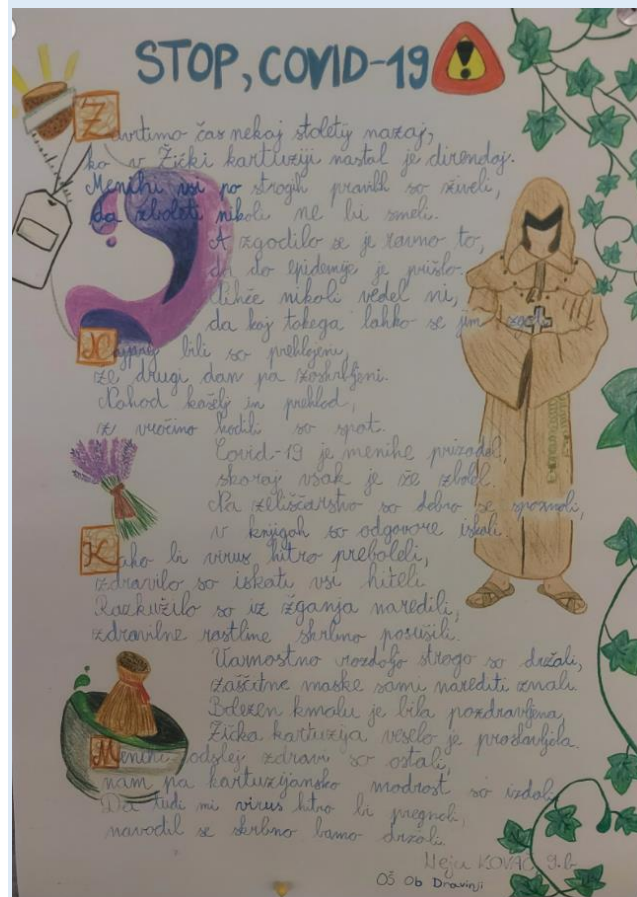 STOP, COVID-19
Zavrtimo čas nekaj stoletij nazaj,
ko v Žički kartuziji nastal je direndaj.
Menihi vsi po strogih pravilih so živeli,
da zboleti nikoli ne bi smeli.
A zgodilo se je ravno to,
da do epidemije je prišlo.
Nihče nikoli vedel ni,
da kaj takega lahko se jim zgodi.
Najprej bili so prehlajeni,
že drugi dan pa zaskrbljeni.
Nahod kašelj in prehlad,
z vročino hodili so spat.
Covid-19 je menihe prizadel,
skoraj vsak je že zbolel.
Na zeliščarstvo so dobro se spoznali,
v knjigah so odgovore iskali.
Kako bi virus hitro preboleli,
zdravilo so iskati vsi hiteli.
Razkužilo so iz žganja naredili,
zdravilne rastline skrbno posušili.
Varnostno razdaljo strogo so držali,
zaščitne maske sami narediti znali.
Bolezen kmalu je bila pozdravljena,
Žička kartuzija veselo je proslavljala.
Menihi odslej zdravi so ostali,
nam pa kartuzijansko modrost so izdali.
Da tudi mi virus hitro bi pregnali,
navodil se skrbno bomo držali.
Neja KOVAČ, 9. b
OŠ Ob Dravinji